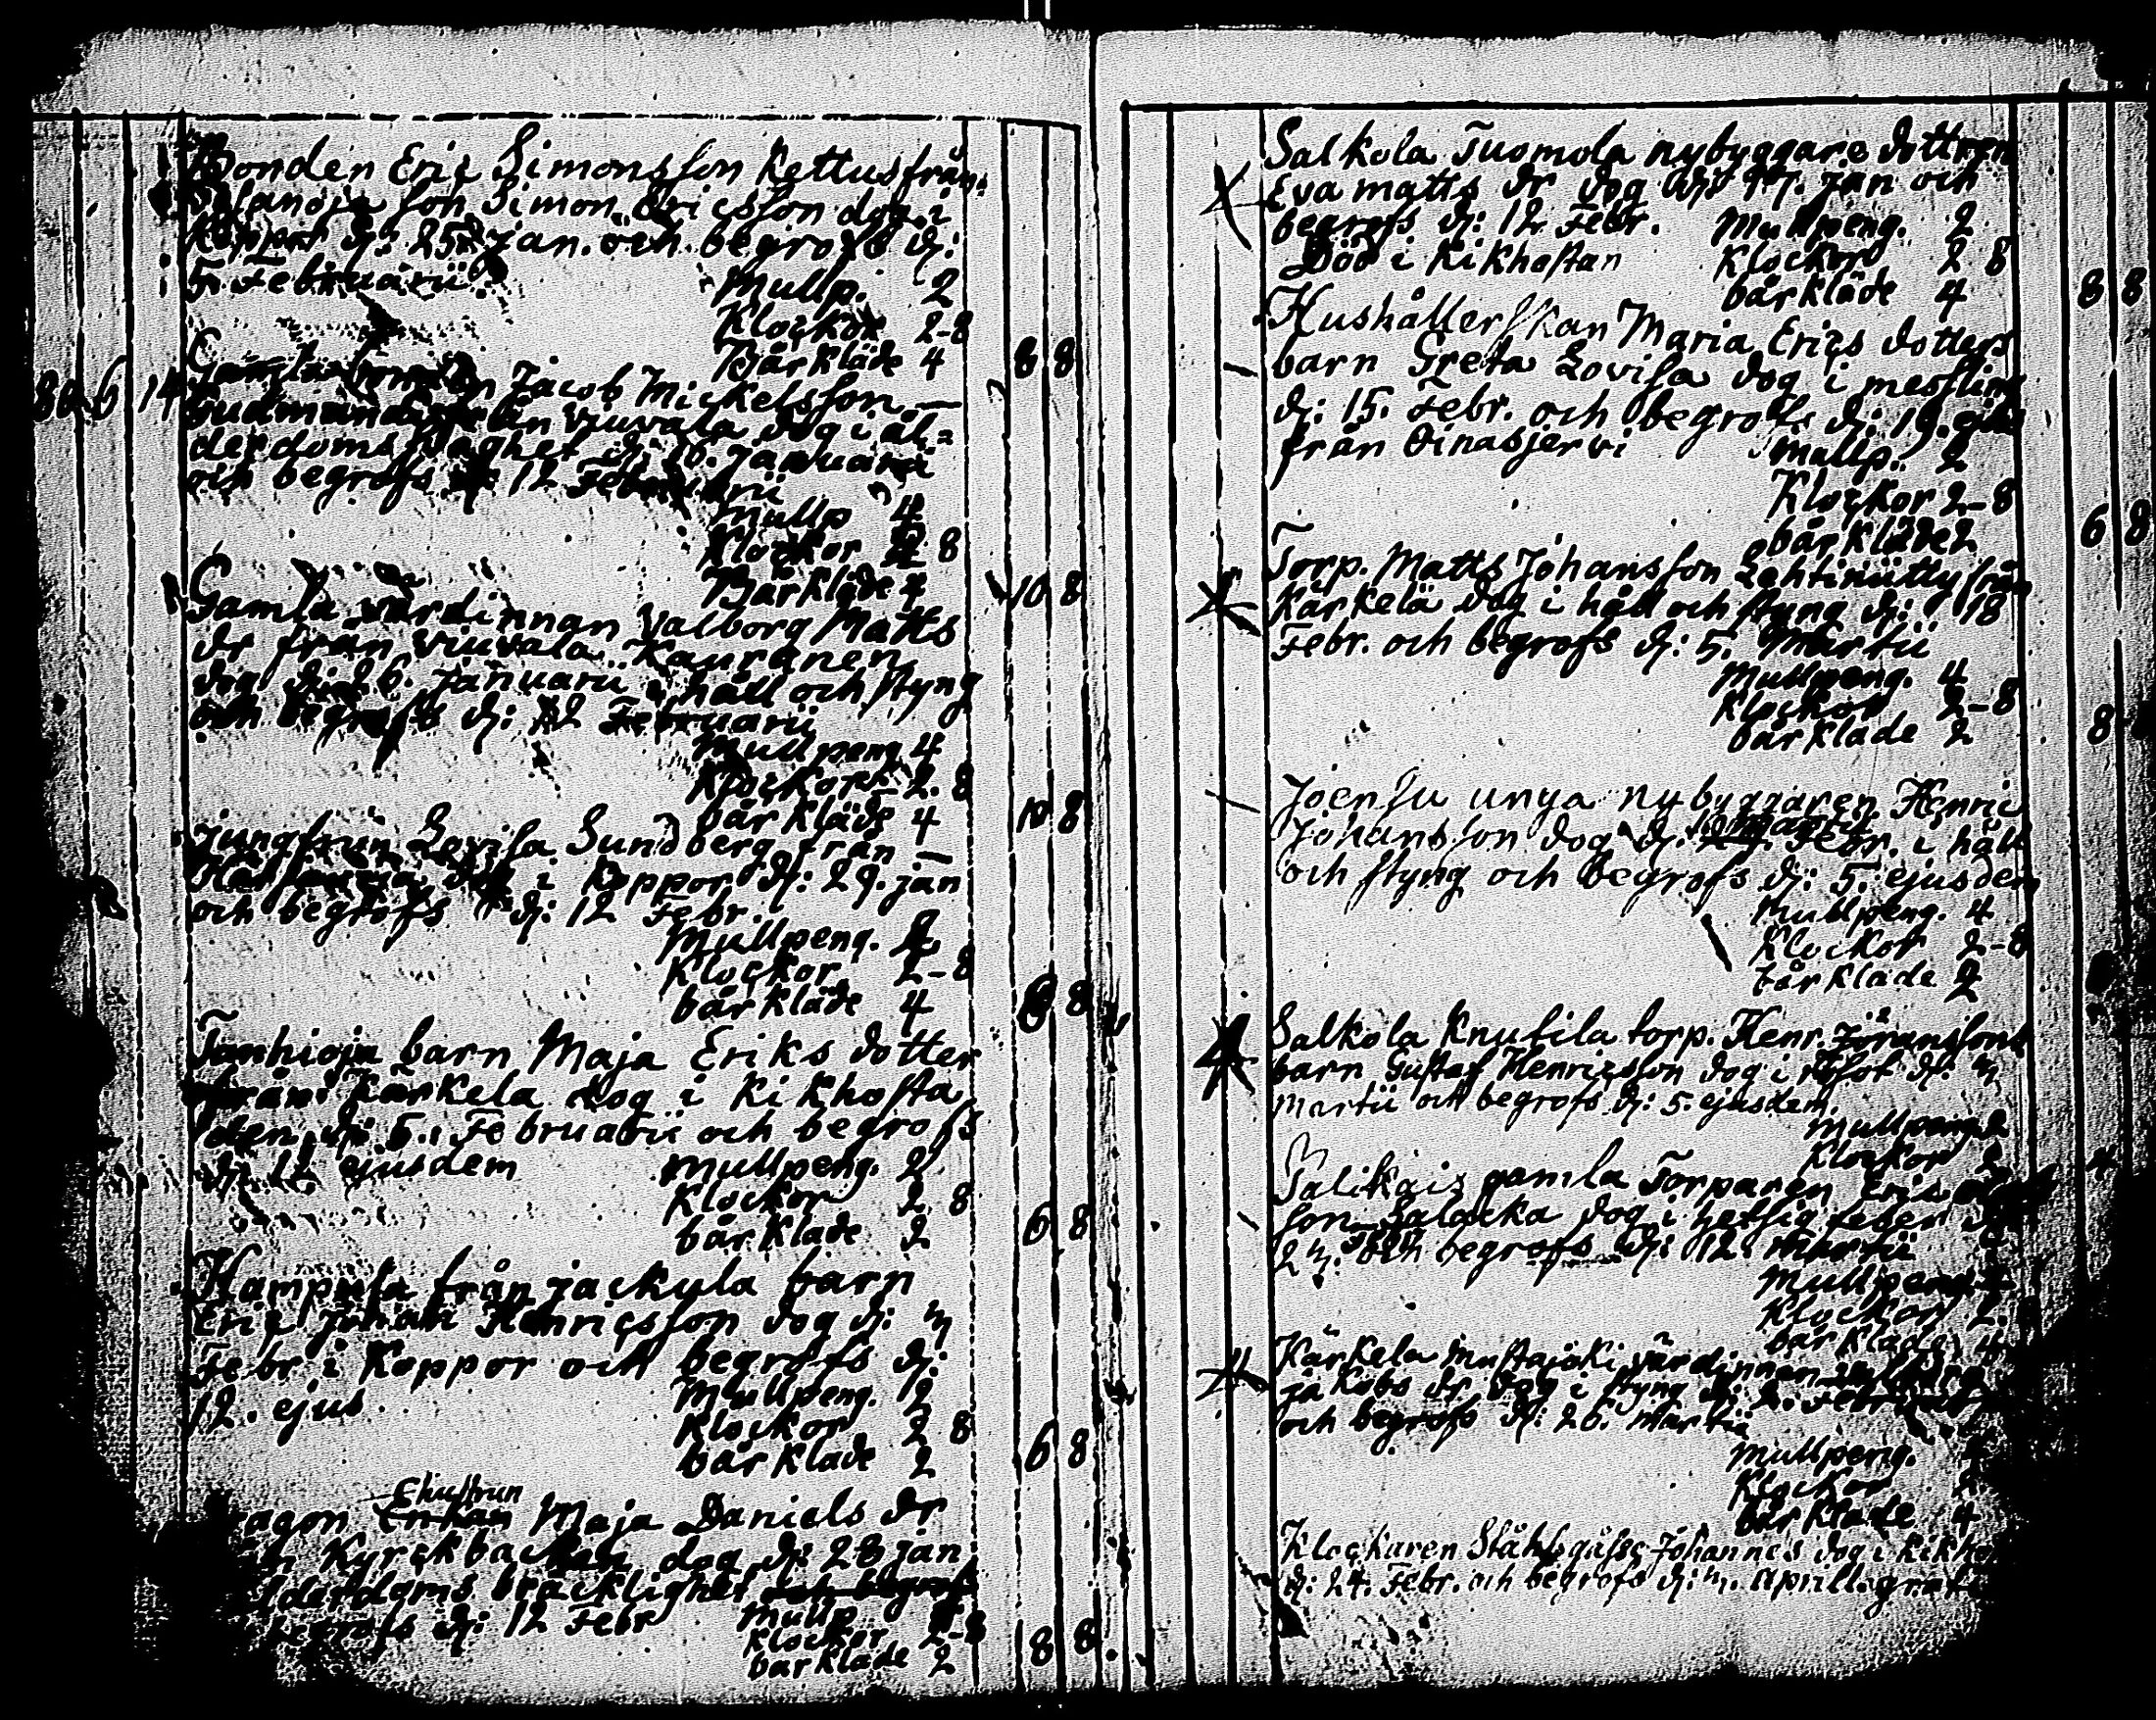 Bonden Eric Simonsson Kettus från
son Simon Ericsson dog i
Koppor dj: 25 Jan. och begrofs dj:
5. Februarii
Mullp. 2
Klockor 2-8
Bårkläde 4
8 8
Gamla Jacob Mickelsson
80 6 14
Viuvala dog i ål=
derdoms dj: Januarii
och begrofs 12 Februarii
Mullp 4
Klockor 2 8
Bårkläde 4
10 8
Gamla värdinnan Valborg Matts
dr från Viuvala Kauranen
dog dj: 26. Januarii i håll och styng
och begrofs dj: 12 Februarii
Mullpeng 4
Klockor 2. 8
bårkläde 4
10 8
Jungfrun Lovisa Sundberg från
i Koppor dj: 29. jan
och begrofs dj: 12 Febr.
Mullpeng. 2
Klockor 2-8
bårkläde 4
8 8
Tanhioja barn Maja Eriks dotter
från Kärkela dog i Kikhosta
den dj 5. Februarii och begrofs
dj: 12 ejusdem
Mullpeng. 2
Klockor 2 8
bårkläde 2
6 8
Hampula från Jackyla barn
Eric Johan Henricsson dog dj: 7
Febr i Koppor och begrofs dj:
12. ejus.
Mullpeng. 2
Klockor 2 8
bårkläde 2
6 8
Ehustrun
Maja Daniels dr
Kyrckbacken dog dj: 28 jan
bräcklighet och begrofs
begrofs dj: 12 Febr
Mullp. 4
Klockor 2-8
bårkläde 2
8 8
Salkola Tuomola nybyggare dottren
Eva matts dr dog dj: 17. Jan och
begrofs dj: 12 Febr.
Mullpeng. 2
Död i Kikhostan
Klockor 2 8
bårkläde 4
8 8
Hushållerskan Maria Erics dotters
barn Greta Lovisa dog i messling
dj: 15. Febr. och begrofs dj: 19. ejus
från Oinasjervi
Mullp. 2
Klockor 2-8
bårkläde 2
6 8
Torp. Matts Johansson Lehtiniitty från
Kärkelä dog i håll och styng dj: 18
Febr. och begrofs dj: 5. Martii
Mullpeng. 4
Klockor 2-8
bårkläde 2
8
Joensu unga nybyggaren Henric
Johansson dog dj: Febr. i håll
och styng och begrofs dj: 5. ejusdem
Mullpeng. 4
Klockor 2-8
bårkläde 2
Salkola Knutila torp. Henr. Jöranssons
barn Gustaf Henricsson dog i dj: 7
Martii och begrofs dj: 5. ejusdem
Mullpeng 2
Klockor 2
gamla Torparen Eric
son dog i hetsig feber
27. Febr och begrofs dj: 12. Martii
Mullpeng
Klockor 2.
bårkläde 4
Kärkela Mustajoki värdinnan
Jakobs dr dog i styng dj: 2. Febr
och begrofs dj: 26. Martii
Mullpeng.
Klockor
bårkläde 4
Klockaren Ståhls Johannes dog i kikho
dj: 24. Febr. och begrofs dj: 7. Aprill.